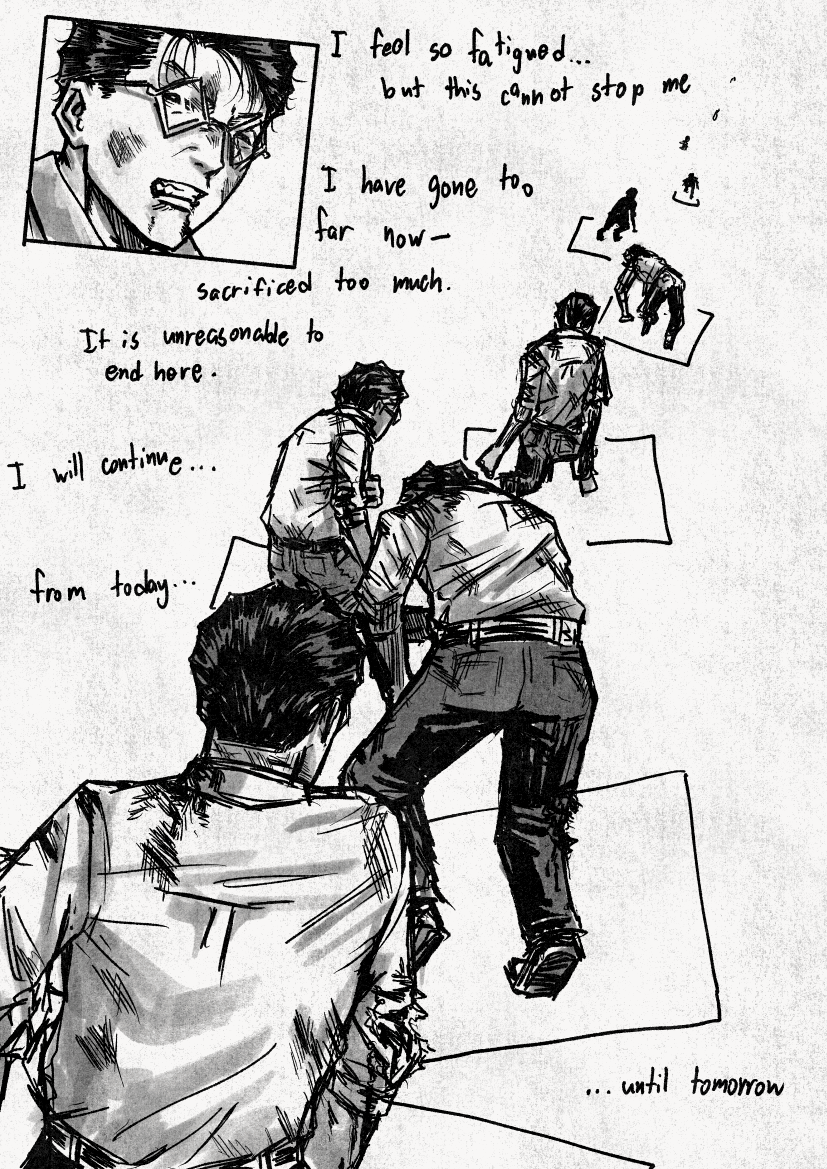 I feel so fatigued...
but this cannot stop me
I have gone too
far now—
sacrificed too much.
It is unreasonable to
end here.
I will continue...
from today...
...until tomorrow